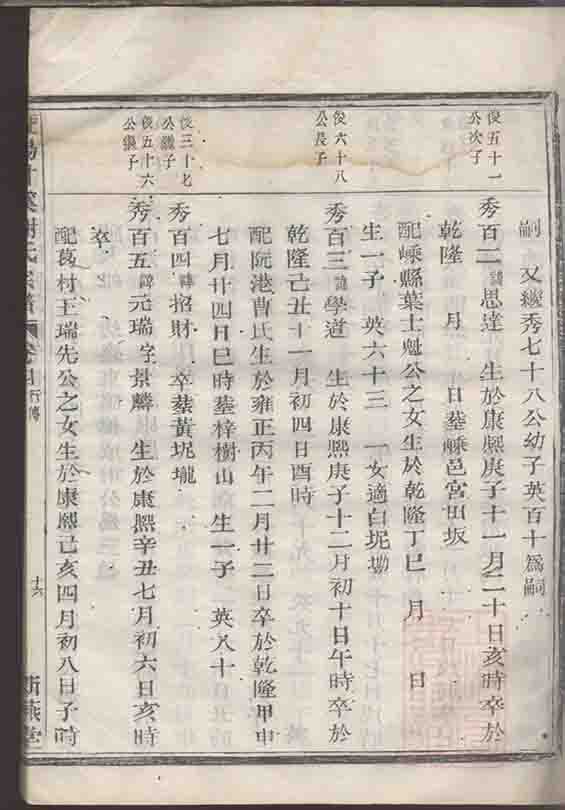 嗣　又繼秀七十八公幼子英百十爲嗣
俊五十一
公次子
秀百二諱思達　生於康熙庚子十一月二十日亥時卒於
乾隆　月　日塟嵊邑宮田坂
配嵊縣葉士魁公之女生於乾隆丁巳　月　日
生一子　英六十三　一女適白坭墈
俊六十八
公長子
秀百三諱學道　生於康熙庚子十二月初十日午時卒於
乾隆己丑十一月初四日酉時
配阮港曹氏生於雍正丙午二月廿二日卒於乾隆甲申
七月廿四日巳時塟梓樹山　生一子　英八十
俊三十七
公繼子
秀百四諱招財　卒塟黃坭壠
俊五十六
公長子
秀百五諱元瑞字景麟　生於康熙辛丑七月初六日亥時
卒
配葛村王瑞先公之女生於康熙己亥四月初八日子時
氏宗譜 卷 行傳
十六